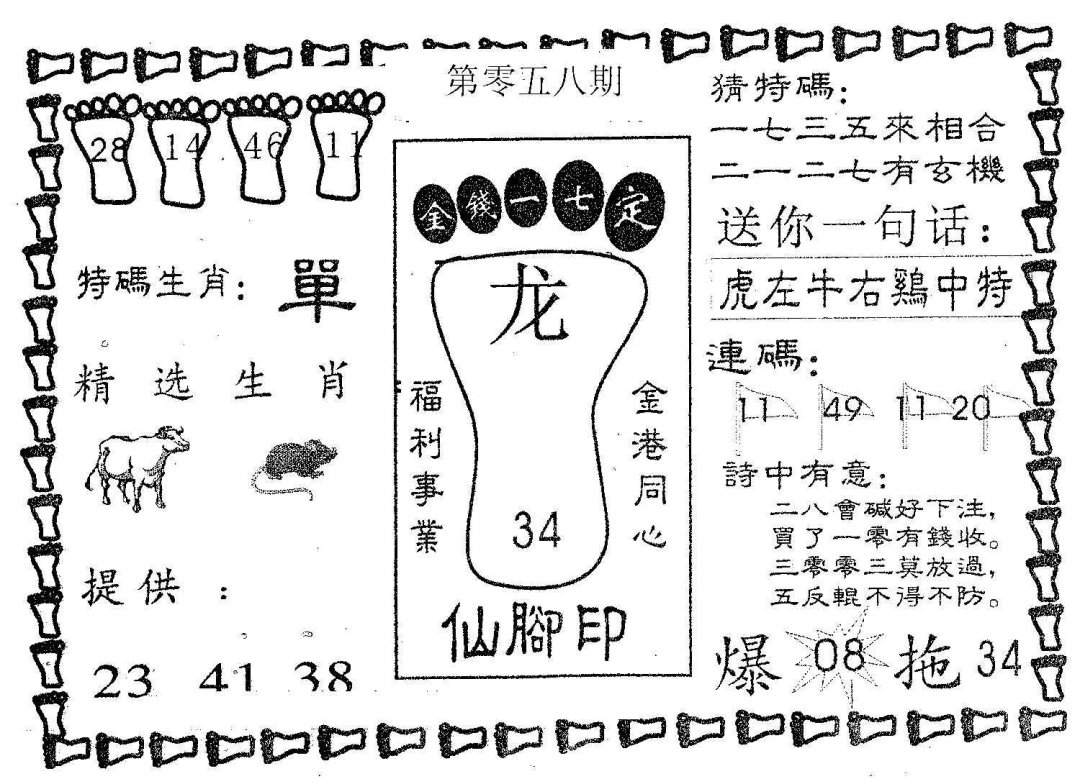 第零五八期
28 14 46 11
特碼生肖：單
精选生肖
提供：
23 41 38
金錢一七定
龙
福利事業
金港同心
34
仙腳印
猜特碼：
一七三五來相合
二一二七有玄機
送你一句话：
虎左牛右鷄中特
連碼：
11 49 11 20
詩中有意：
二八會碱好下注，
買了一零有錢收。
三零零三莫放過，
五反輥不得不防。
爆 08 拖 34